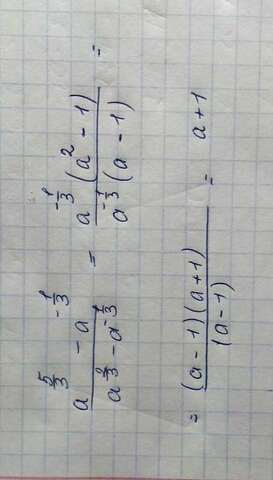 \frac{a^{\frac{5}{3}} - a^{-\frac{1}{3}}}{a^{\frac{2}{3}} - a^{-\frac{1}{3}}} = \frac{a^{-\frac{1}{3}}(a^2 - 1)}{a^{-\frac{1}{3}}(a - 1)} =
= \frac{(a - 1)(a + 1)}{(a - 1)} = a + 1